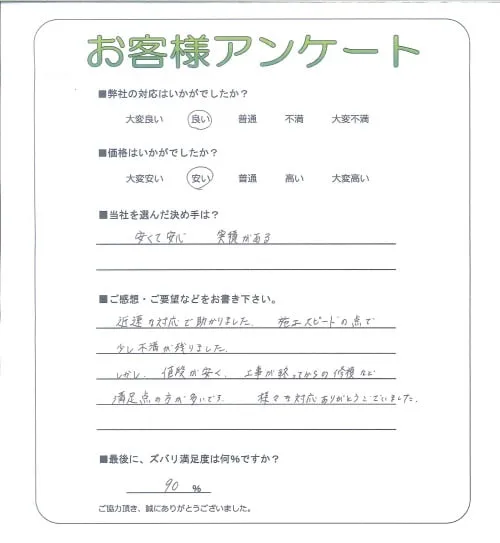 お客様アンケート
■弊社の対応はいかがでしたか？
大変良い 良い 普通 不満 大変不満
■価格はいかがでしたか？
大変安い 安い 普通 高い 大変高い
■当社を選んだ決め手は？
安くて安心 実績がある
■ご感想・ご要望などをお書き下さい。
迅速の対応で助かりました。 施工スピードの点で
少し不満が残りました。
しかし、値段が安く、工事が終ってからの修復など
満足点の方が多いです。 様々な対応ありがとうございました。
■最後に、ズバリ満足度は何％ですか？
90 %
ご協力頂き、誠にありがとうございました。